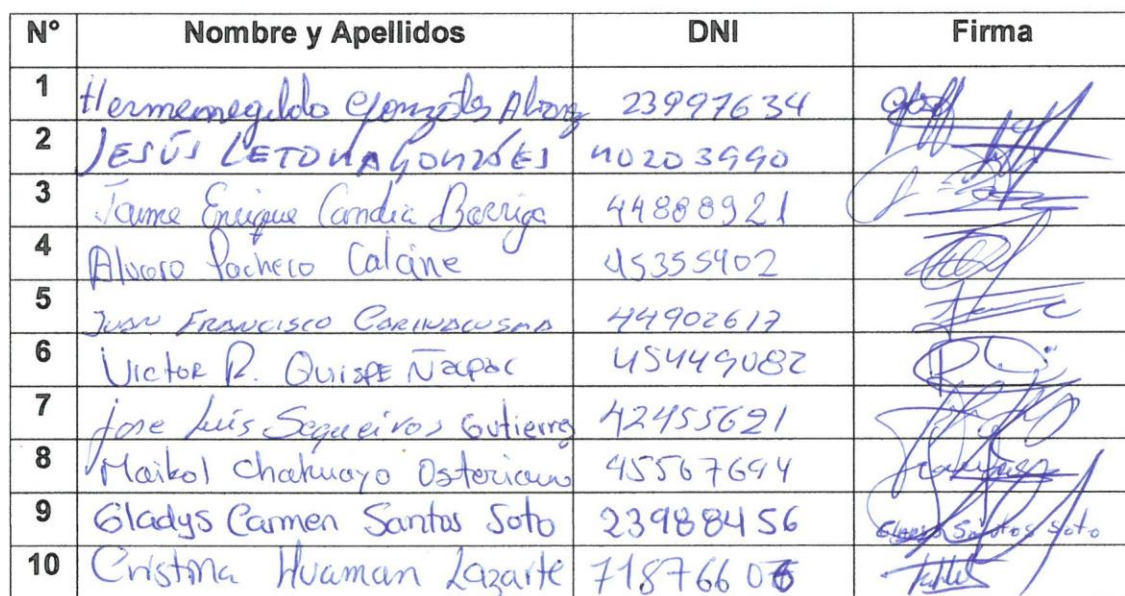 N° Nombre y Apellidos DNI Firma
1 Hermenegildo Gonzales 23997634
2 JESÚS LETONA GONZÁLES 40203990
3 Jaime Enrique Candia Barriga 44888921
4 Alvaro Pacheco Calcine 45355902
5 JUAN FRANCISCO 44902617
6 VICTOR R. QUISPE 45449082
7 Jose Luis Sequeiros Gutierrez 42455621
8 Maikol 45567694
9 Gladys Carmen Santos Soto 23988456 Gladys Santos Soto
10 Cristina Huaman Lazarte 71876606